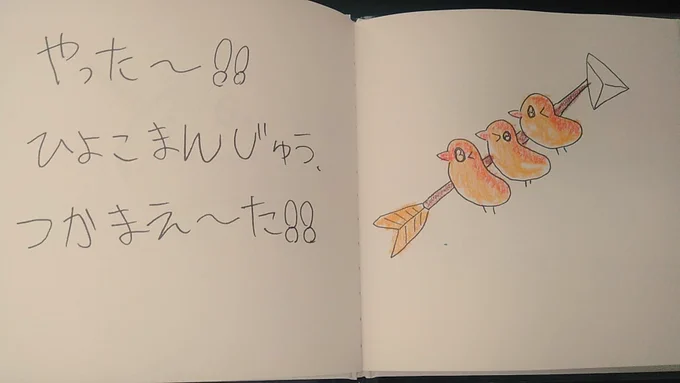 やった～!!
ひよこまんじゅう、
つかまえ～た!!